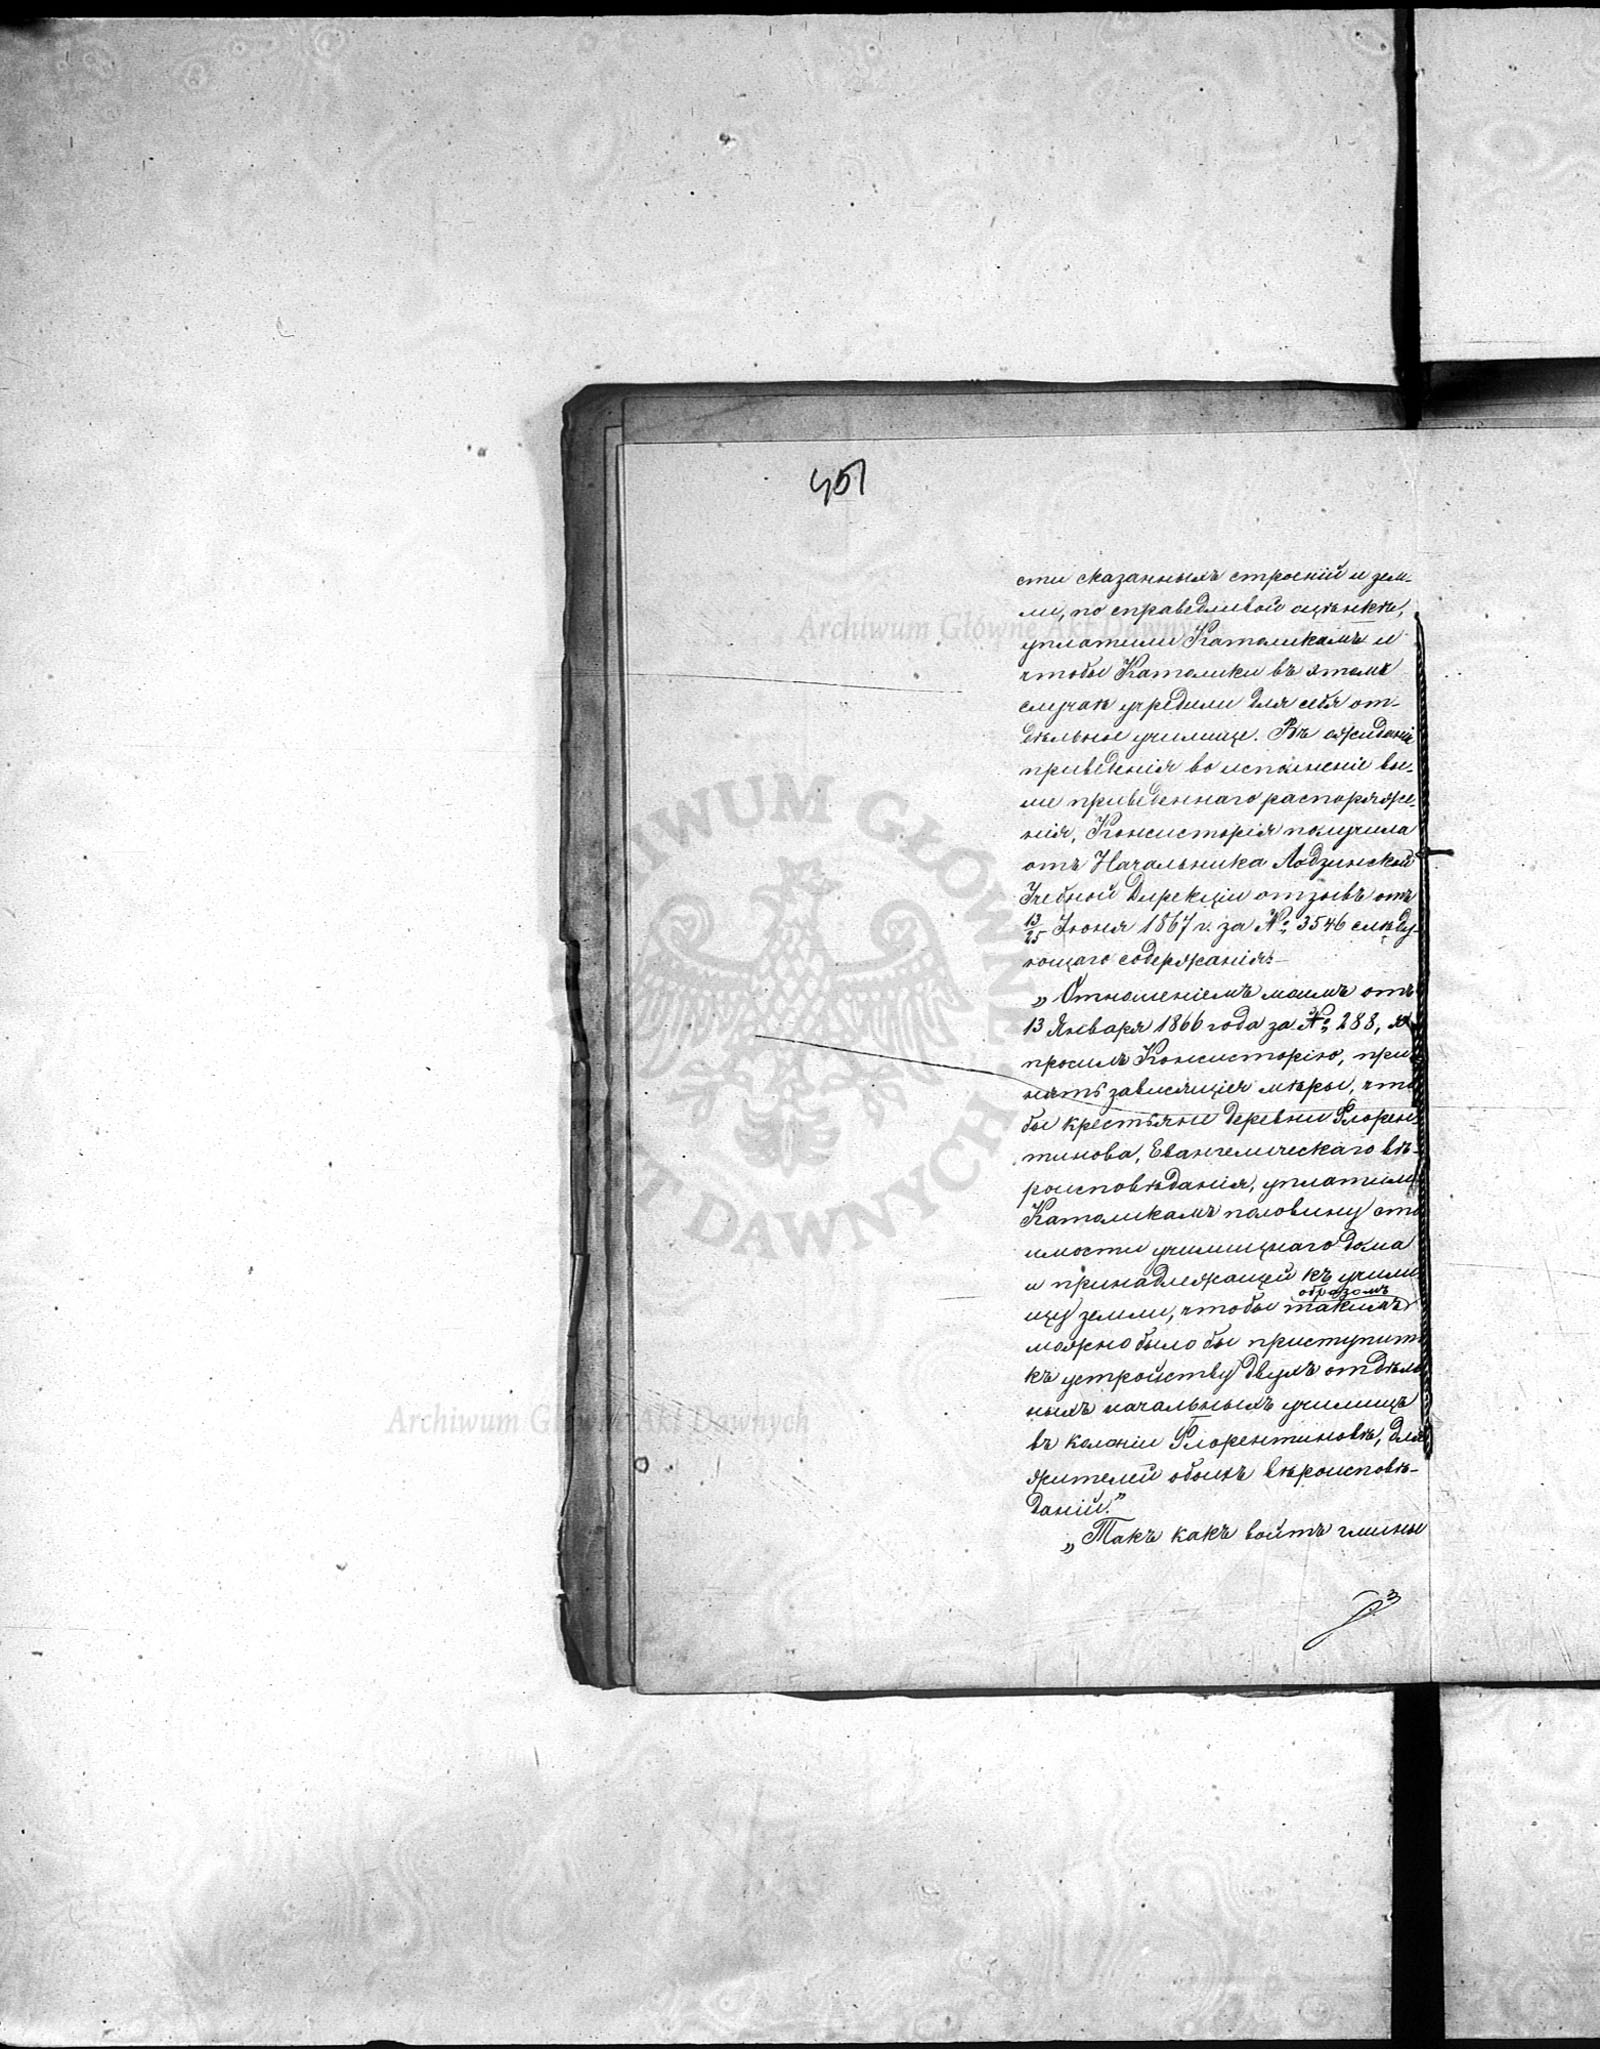 451
сти сказанныхъ строеній и зем-
ли, по справедливой оцѣнкѣ,
уплатили Католикамъ и
чтобы Католики въ этомъ
случаѣ учредили для себя от-
дѣльное училище. Въ ожиданіи
приведенія во исполненіе вы-
ше приведеннаго распоряже-
нія, Консисторія получила
отъ Начальника Лодзинской
Учебной Дирекціи отзывъ отъ
13/25 Іюня 1867 г. за №: 3546 слѣду-
ющаго содержанія:
„Отношеніемъ моимъ отъ
13 Января 1866 года за №: 288, я
просилъ Консисторію, при
нять зависящія мѣры, что
бы крестьяне деревни Флорен-
тинова, Евангелическаго вѣ-
роисповѣданія, уплатили
Католикамъ половину сто
имости училищнаго дома
и принадлежащей къ учили
щу земли, чтобы такимъ образомъ
можно было бы приступить
къ устройству двухъ отдѣль
ныхъ начальныхъ училищъ
въ колоніи Флорентиновѣ, для
жителей обоихъ вѣроисповѣ-
даній."
„Такъ какъ войтъ гмины
Archiwum Główne Akt Dawnych
Archiwum Główne Akt Dawnych
ARCHIWUM GŁÓWNE AKT DAWNYCH